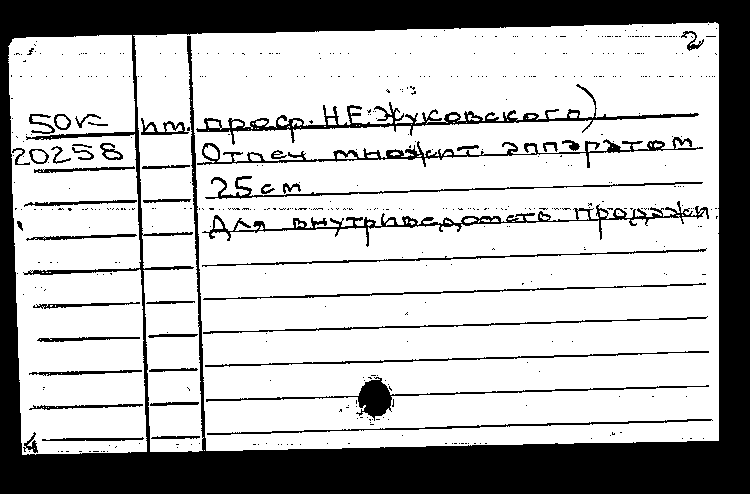 2
50к пт. проф. Н.Е.Жуковского).
20258 Отпеч множит. аппаратом
25см.
Для внутриведомств продажи